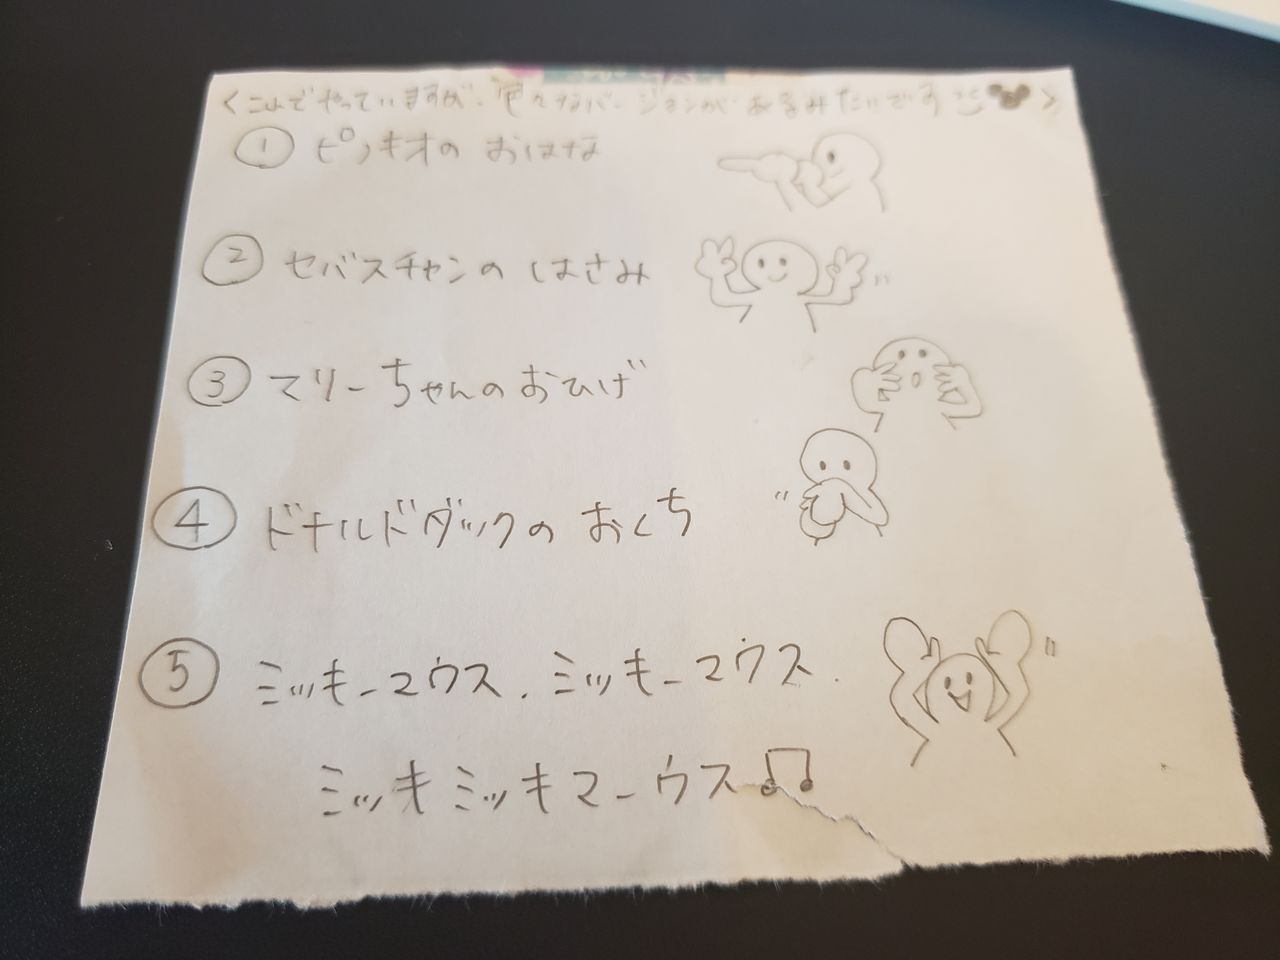 <これでやっていますが、色々なバージョンがあるみたいです>
① ピノキオの おはな
② セバスチャンの はさみ
③ マリーちゃんの おひげ
④ ドナルドダックの おくち
⑤ ミッキーマウス、ミッキーマウス、
ミッキミッキマーウス♫